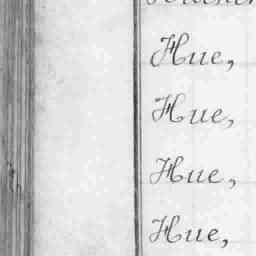 Hue,
Hue,
Hue,
Hue,